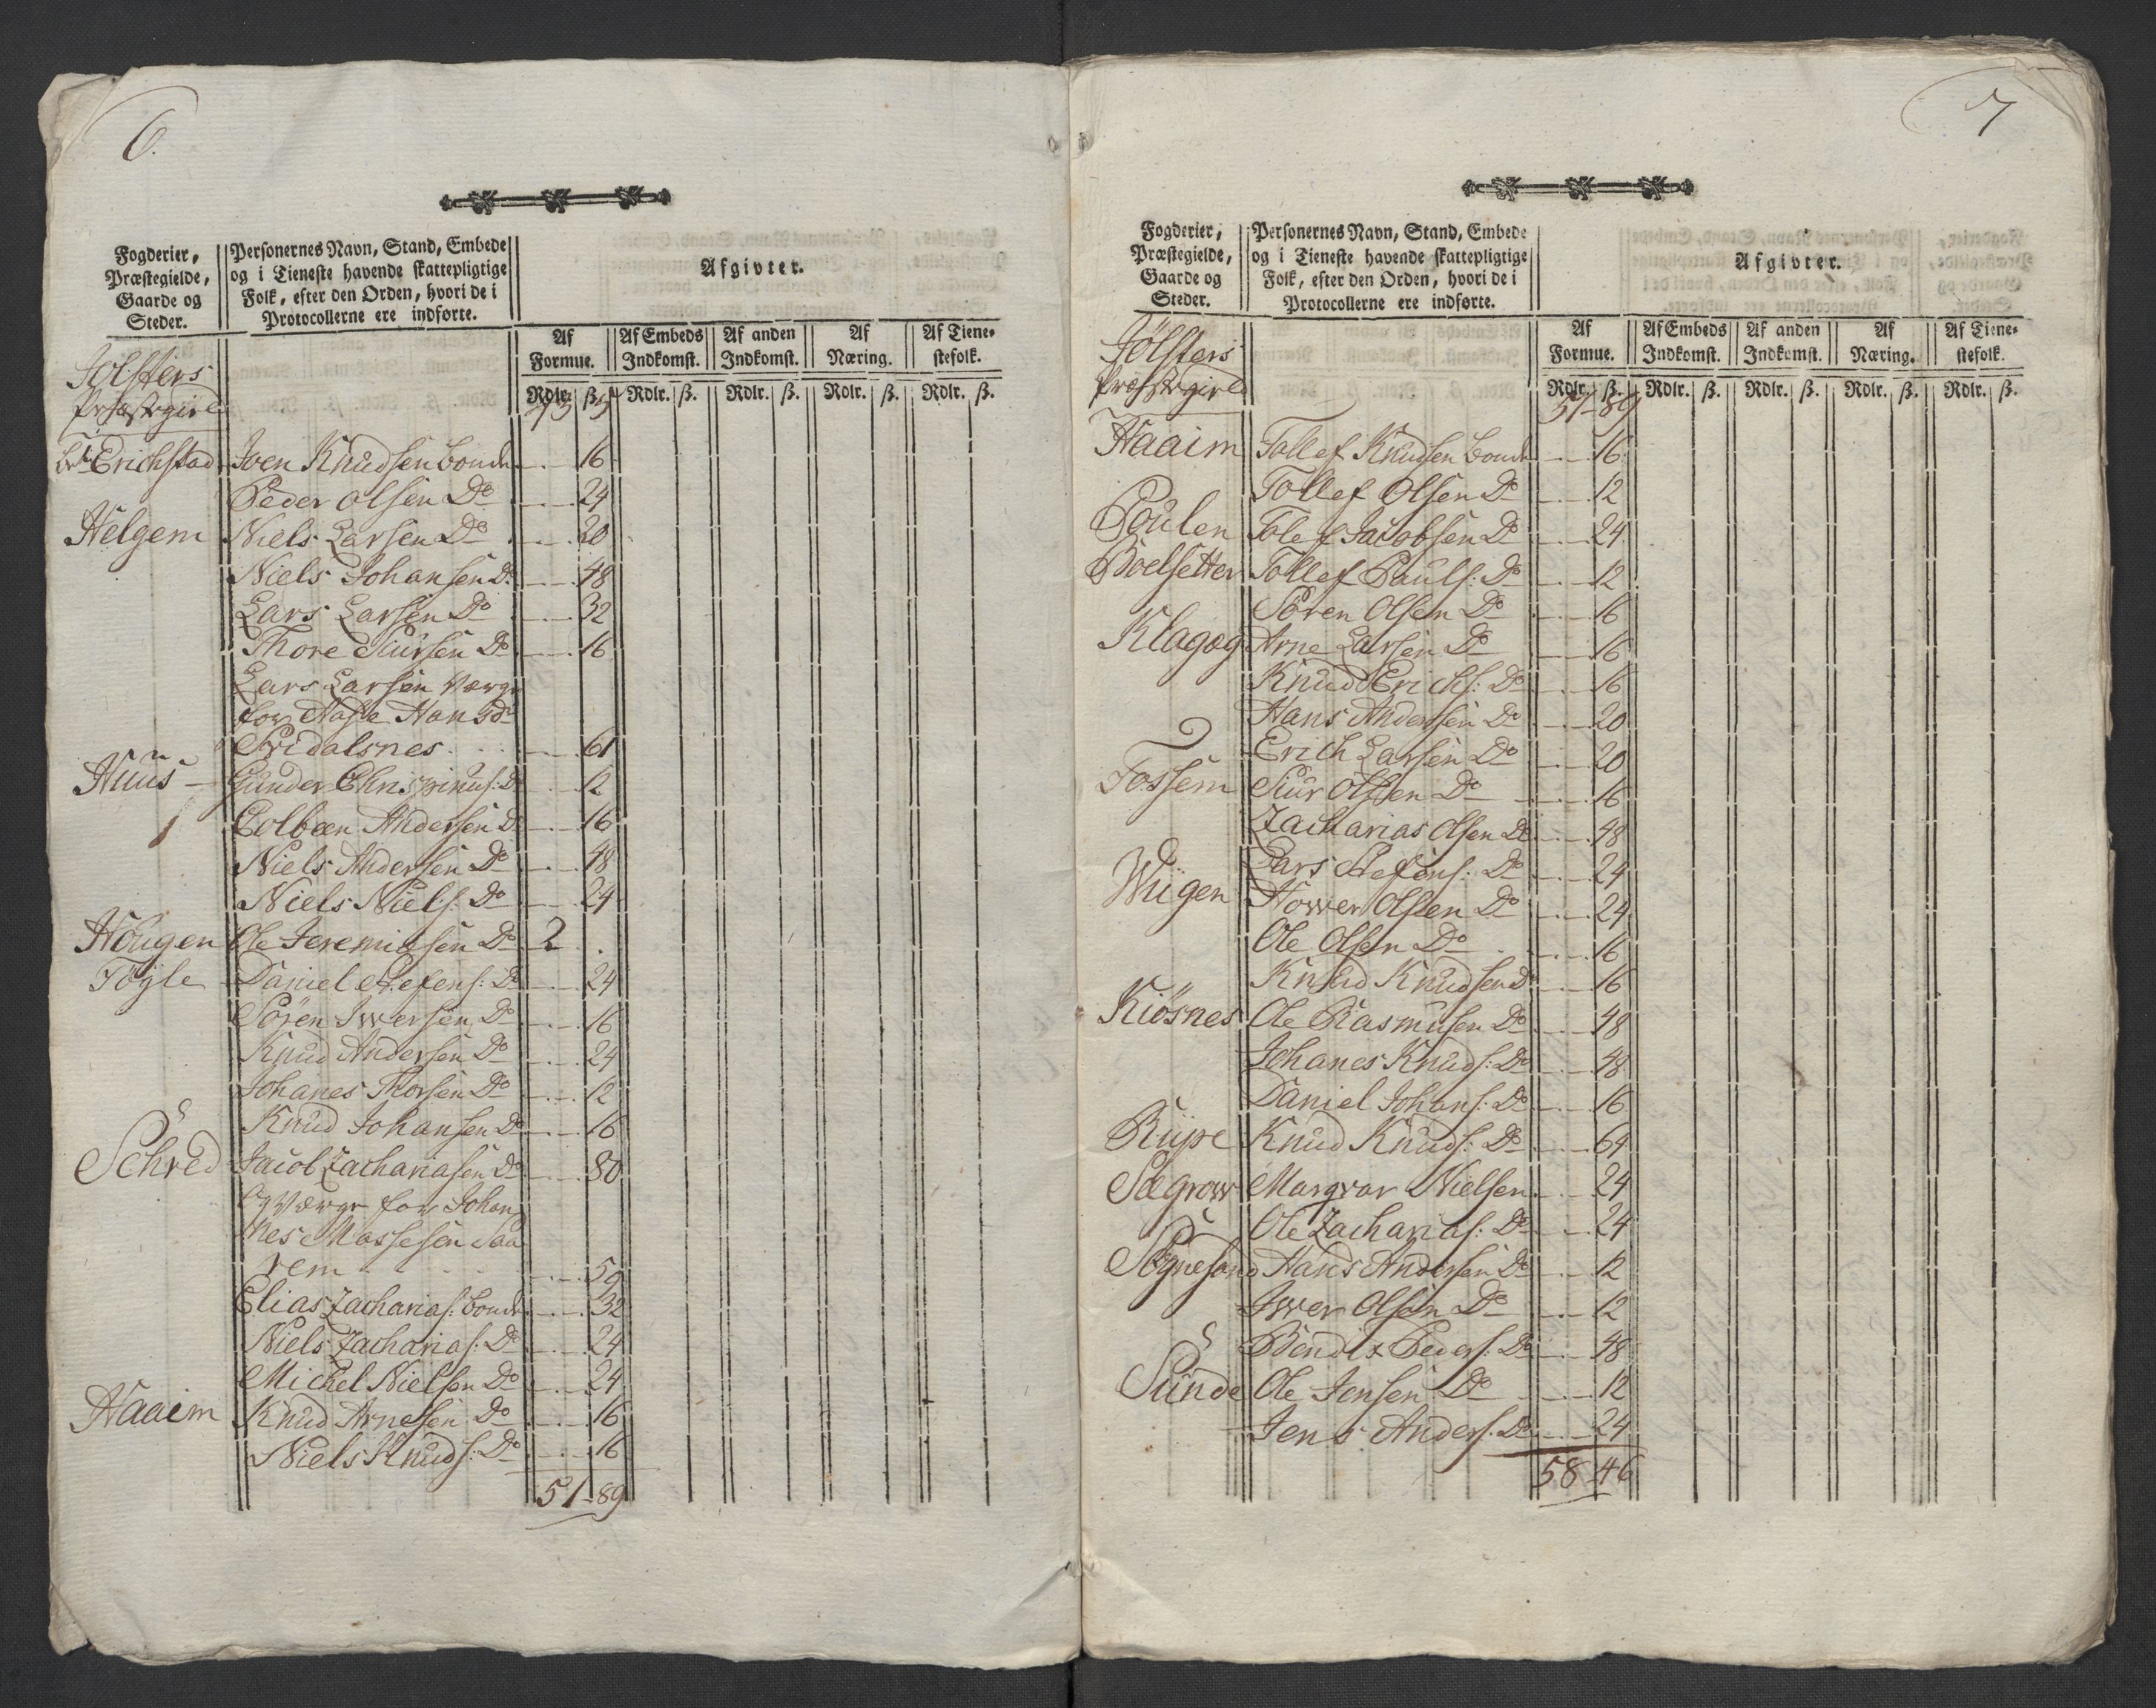 6.
Fogderier,
Præstegielde,
Gaarde og
Steder.
Personernes Navn, Stand, Embede
og i Tieneste havende skattepligtige
Folk, efter den Orden, hvori de i
Protocollerne ere indførte.
Afgivter.
Af Formue. Af Embeds Indkomst. Af anden Indkomst. Af Næring. Af Tienestefolk.
Rdlr. ß. Rdlr. ß. Rdlr. ß. Rdlr. ß. Rdlr. ß.
Jölsters
Præstegield
Erichstad Joen Knudsen bonde 16
Peder Olsen Do 24
Helgem Niels Larsen Do 20
Niels Johansen Do 48
Lars Larsen Do 32
Thore Siursen Do 16
Lars Larsen Værge
for Hansdr
Svidalsnes 61
Huus Gunder Chrispinus: Do 12
Colbeen Andersen Do 16
Niels Andersen Do 48
Niels Niels: Do 24
Hougen Ole Jeremiasen Do 2
Fögle Daniel Stefens: Do 24
Sören Iwersen Do 16
Knud Andersen Do 24
Johanes Thorsen Do 12
Knud Johansen Do 16
Schred Jacob Zachariasen Do 80
Og Værge for Johan
nes Massesen Saa
rem 59
Elias Zacharias: bonde 32
Niels Zacharias: Do 24
Michel Nielsen Do 24
Haaim Knud Arnesen Do 16
Niels Knuds: Do 16
51-89
7
Fogderier,
Præstegielde,
Gaarde og
Steder.
Personernes Navn, Stand, Embede
og i Tieneste havende skattepligtige
Folk, efter den Orden, hvori de i
Protocollerne ere indførte.
Afgivter.
Af Formue. Af Embeds Indkomst. Af anden Indkomst. Af Næring. Af Tienestefolk.
Rdlr. ß. Rdlr. ß. Rdlr. ß. Rdlr. ß. Rdlr. ß.
Jölsters
Præstegield
51-89
Haaim Tollef Knudsen bonde 16
Tollef Olsen Do 12
Poulen Tolef Jacobsen Do 24
Böelsetter Tollef Pauls: Do 12
Sören Olsen Do 16
Klageg Arne Larsen Do 16
Knud Erichs: Do 16
Hans Andersen Do 20
Erich Larsen Do 20
Fossem Siur Olsen Do 16
Zacharias Olsen Do 48
Lars Stefens: Do 24
Wiigen Hower Olsen Do 24
Ole Olsen Do 16
Knud Knudsen Do 16
Kiösnes Ole Rasmusen Do 48
Johanes Knuds: Do 48
Daniel Johans: Do 16
Riipe Knud Knuds: Do 64
Sægrow Margvar Nielsen 24
Ole Zacharias: Do 24
Sögnesand Hans Andersen Do 12
Iwer Olsen Do 12
Bendix Peders: Do 48
Sunde Ole Jensen Do 12
Jens Anders: Do 24
58 46